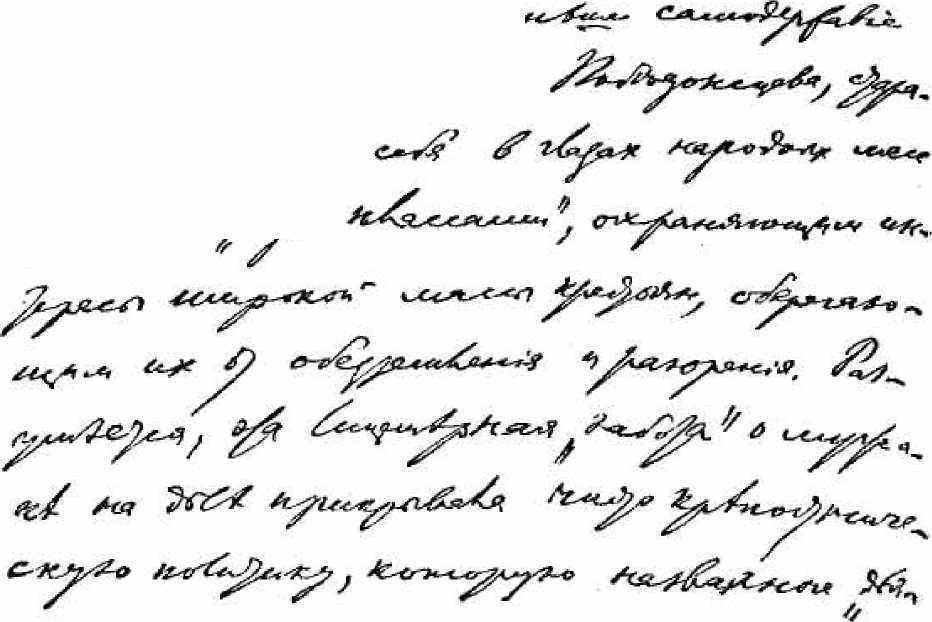 самодержавіе
Побѣдоносцева, стара-
себя в глазах народных масс
охраняющим ин-
тересы широкой массы крестьян, оберегаю-
щим их от обезземеленія и разоренія. Раз-
умѣется, эта лицемѣрная „забота" о мужи-
кѣ на дѣлѣ прикрывала чисто крѣпостниче-
скую политику, которую названные „дѣя-